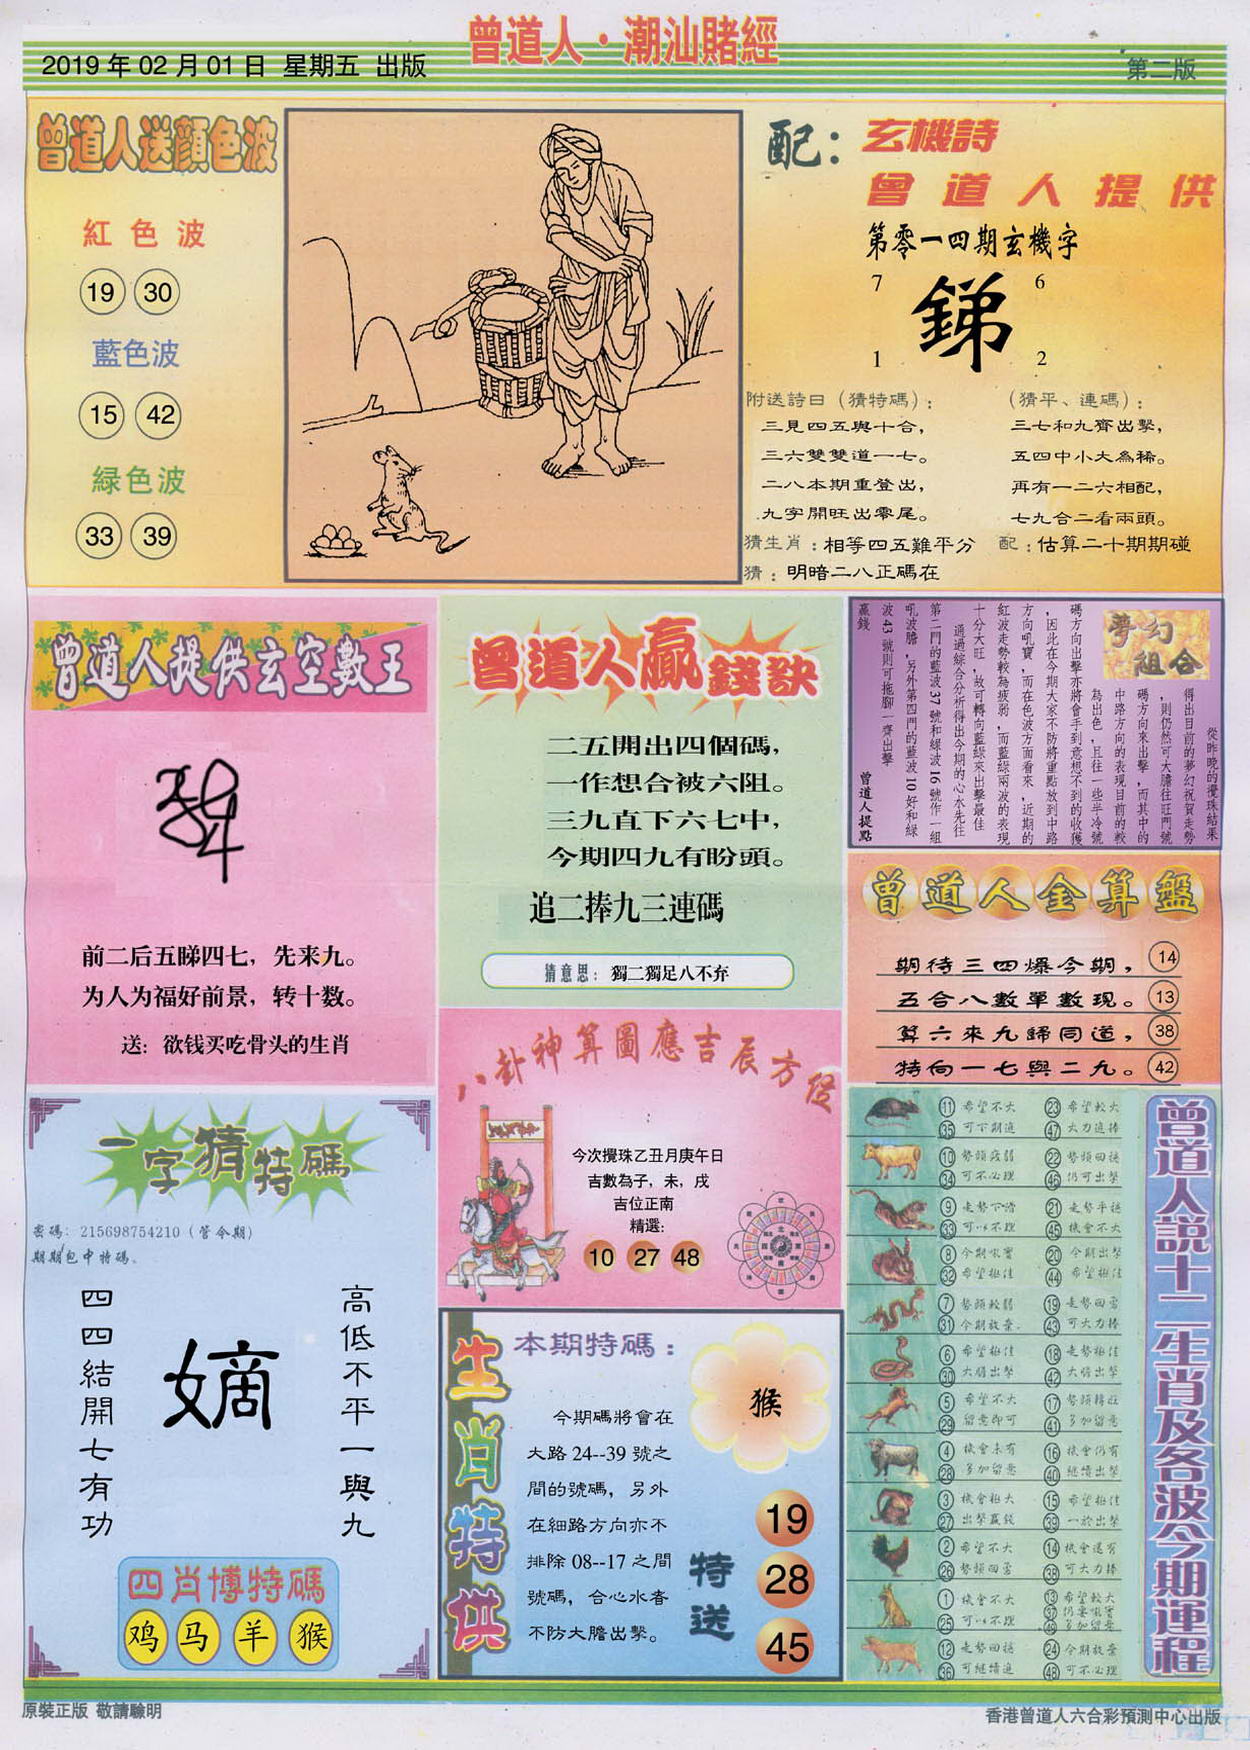 曾道人·潮汕賭經
2019年02月01日 星期五 出版
第二版
曾道人送顔色波
紅色波
19 30
藍色波
15 42
緑色波
33 39
配：玄機詩
曾道人提供
第零一四期玄機字
7 6
銻
1 2
附送詩曰（猜特碼）：
三見四五與十合，
三六雙雙道一七。
二八本期重登出，
九字開旺出零尾。
（猜平、連碼）：
三七和九齊出擊，
五四中小大為稀。
再有一二六相配，
七九合二看兩頭。
猜生肖：相等四五難平分 配：估算二十期期碰
猜：明暗二八正碼在
曾道人提供玄空數王
前二后五睇四七，先来九。
为人为福好前景，转十数。
送：欲钱买吃骨头的生肖
曾道人贏錢訣
二五開出四個碼，
一作想合被六阻。
三九直下六七中，
今期四九有盼頭。
追二捧九三連碼
猜意思：獨二獨足八不弃
夢幻
組合
從昨晚的攪珠結果
得出目前的夢幻祝賀走勢
，則仍然可大膽往旺門號
碼方向來出擊，而其中的
中路方向的表現目前的較
為出色，且往一些半冷號
碼方向出擊亦將會手到意想不到的收獲
，因此在今期大家不防將重點放到中路
方向吼寶，而在色波方面看來，近期的
紅波走勢較為疲弱，而藍緑兩波的表現
十分大旺，故可轉向藍緑來出擊最佳
通過綜合分析得出今期的心水先往
第二門的藍波37號和緑波16號作一組
吼波膽，另外第四門的藍波10好和緑
波43號則可拖腳一齊出擊
贏錢
曾道人提點
曾道人金算盤
期待三四爆今期，14
五合八數單數現。13
算六來九歸同道，38
特向一七與二九。42
八卦神算圖應吉辰方位
今次攪珠乙丑月庚午日
吉數為子，未，戌
吉位正南
精選：
10 27 48
一字猜特碼
密碼：215698754210（管今期）
期期包中特碼。
高低不平一與九
嫡
四四結開七有功
四肖博特碼
鸡 马 羊 猴
生肖特供
本期特碼：
猴
今期碼將會在
大路24--39號之
間的號碼，另外
在細路方向亦不
排除08--17之間
號碼，合心水者
不防大膽出擊。
特送
19
28
45
曾道人說十二生肖及各波今期運程
11 希望不大 23 希望較大
35 可下期追 47 大力追捧
10 勢頭疲弱 22 勢頭回穩
34 可不必理 46 仍可出擊
9 走勢下滑 21 走勢平穩
33 可以不理 45 機會不大
8 今期吼寶 20 今期出擊
32 希望極佳 44 希望極佳
7 勢頭較弱 19 走勢回勇
31 今期放棄 43 可大力捧
6 希望極佳 18 走勢極佳
30 大膽出擊 42 大膽出擊
5 希望不大 17 勢頭轉旺
29 留意即可 41 多加留意
4 機會未有 16 機會仍有
28 多加留意 40 繼續出擊
3 機會極大 15 希望極佳
27 出擊贏錢 39 一於出擊
2 希望不大 14 機會還有
26 勢頭回勇 38 可大力捧
1 機會不大 13 希望較大
25 可以不理 37 仍要吼實
49 多加留意
12 走勢回穩 24 今期放棄
36 可繼續追 48 可不必理
原裝正版 敬請驗明
香港曾道人六合彩預測中心出版